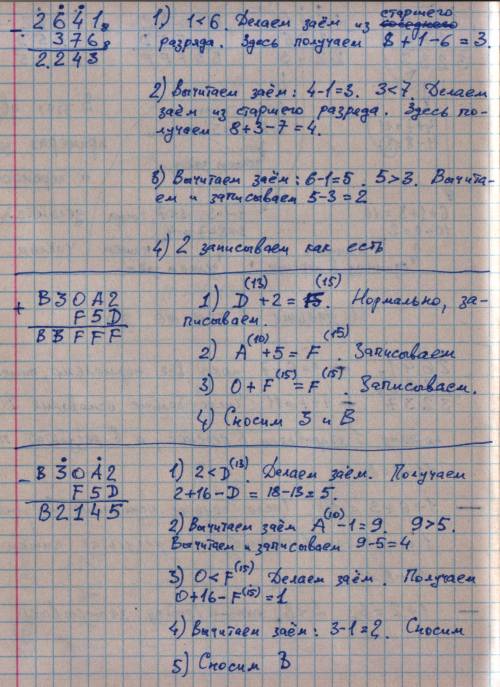 2641₈
- 376₈
2.243
1) 1<6. Делаем заём из старшего
разряда. Здесь получаем 8+1-6=3.
2) Вычитаем заём: 4-1=3. 3<7. Делаем
заём из старшего разряда. Здесь по-
лучаем 8+3-7=4.
3) Вычитаем заём: 6-1=5. 5>3. Вычита-
ем и записываем 5-3=2
4) 2 записываем как есть
+ B30A2
F5D
B3FFF
1) D(13)+2=15(15). Нормально, за-
писываем.
2) A(10)+5=F(15). Записываем
3) 0+F(15)=F(15). Записываем.
4) Сносим 3 и B
- B30A2
F5D
B2145
1) 2<D(13). Делаем заём. Получаем
2+16-D=18-13=5.
2) Вычитаем заём A(10)-1=9. 9>5.
Вычитаем и записываем 9-5=4
3) 0<F(15). Делаем заём. Получаем
0+16-F(15)=1
4) Вычитаем заём: 3-1=2. Сносим
5) Сносим B